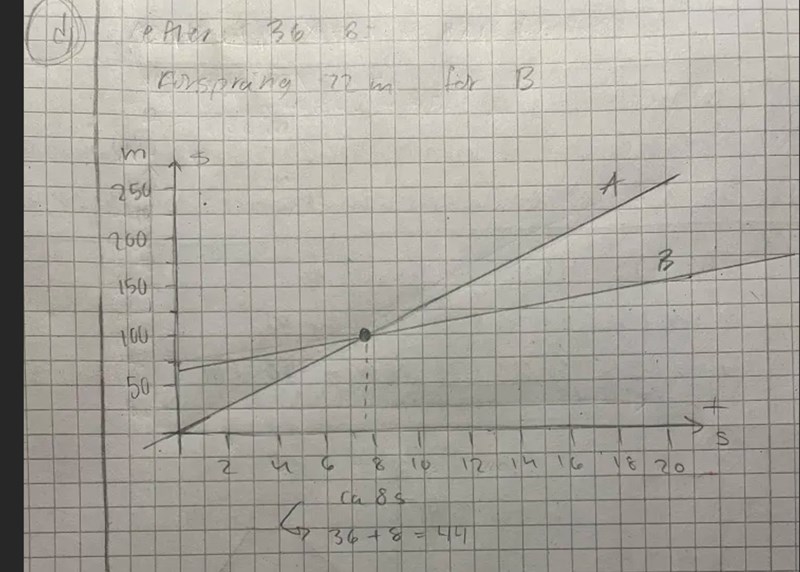 d)
efter 36 s:
Försprång 72 m for B
m s
250 A
200
150 B
100
50
t
s
2 4 6 8 10 12 14 16 18 20
ca 8s
36 + 8 = 44